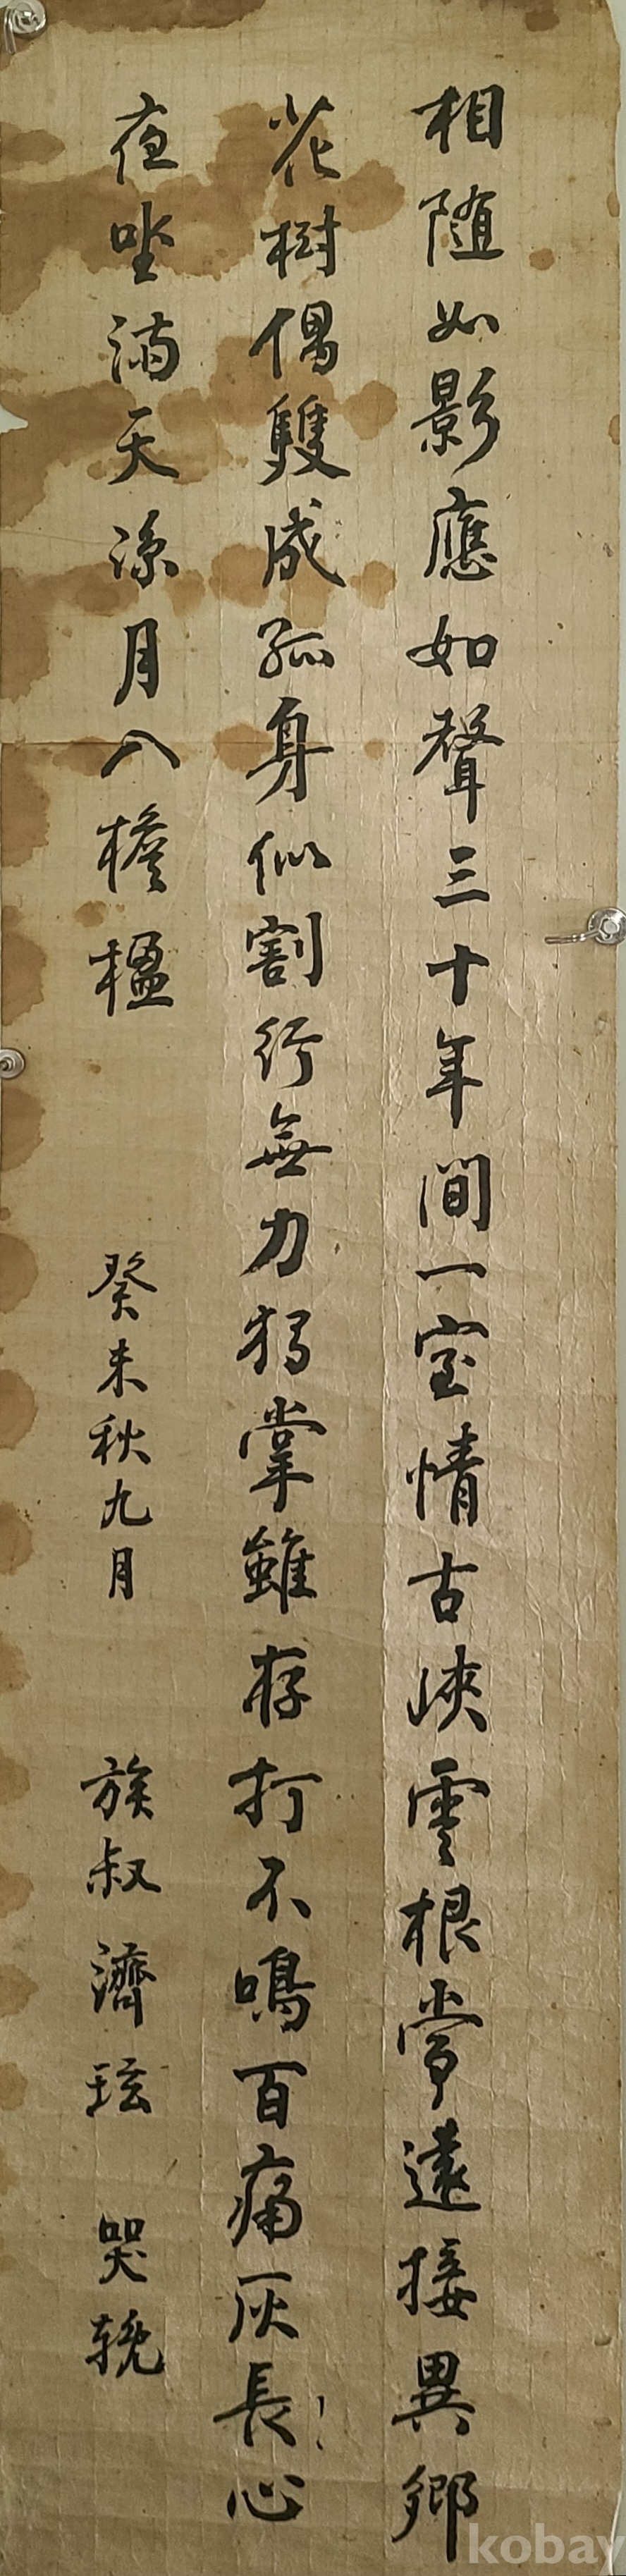 相随如影應如聲三十年間一室情古峽雲根常遠接異鄉
花樹偶雙成孤身似割行無力獨掌雖存打不鳴百痛灰長心
夜坐滿天凉月入檐楹
癸未秋九月
族叔濟玹 哭輓
kobay